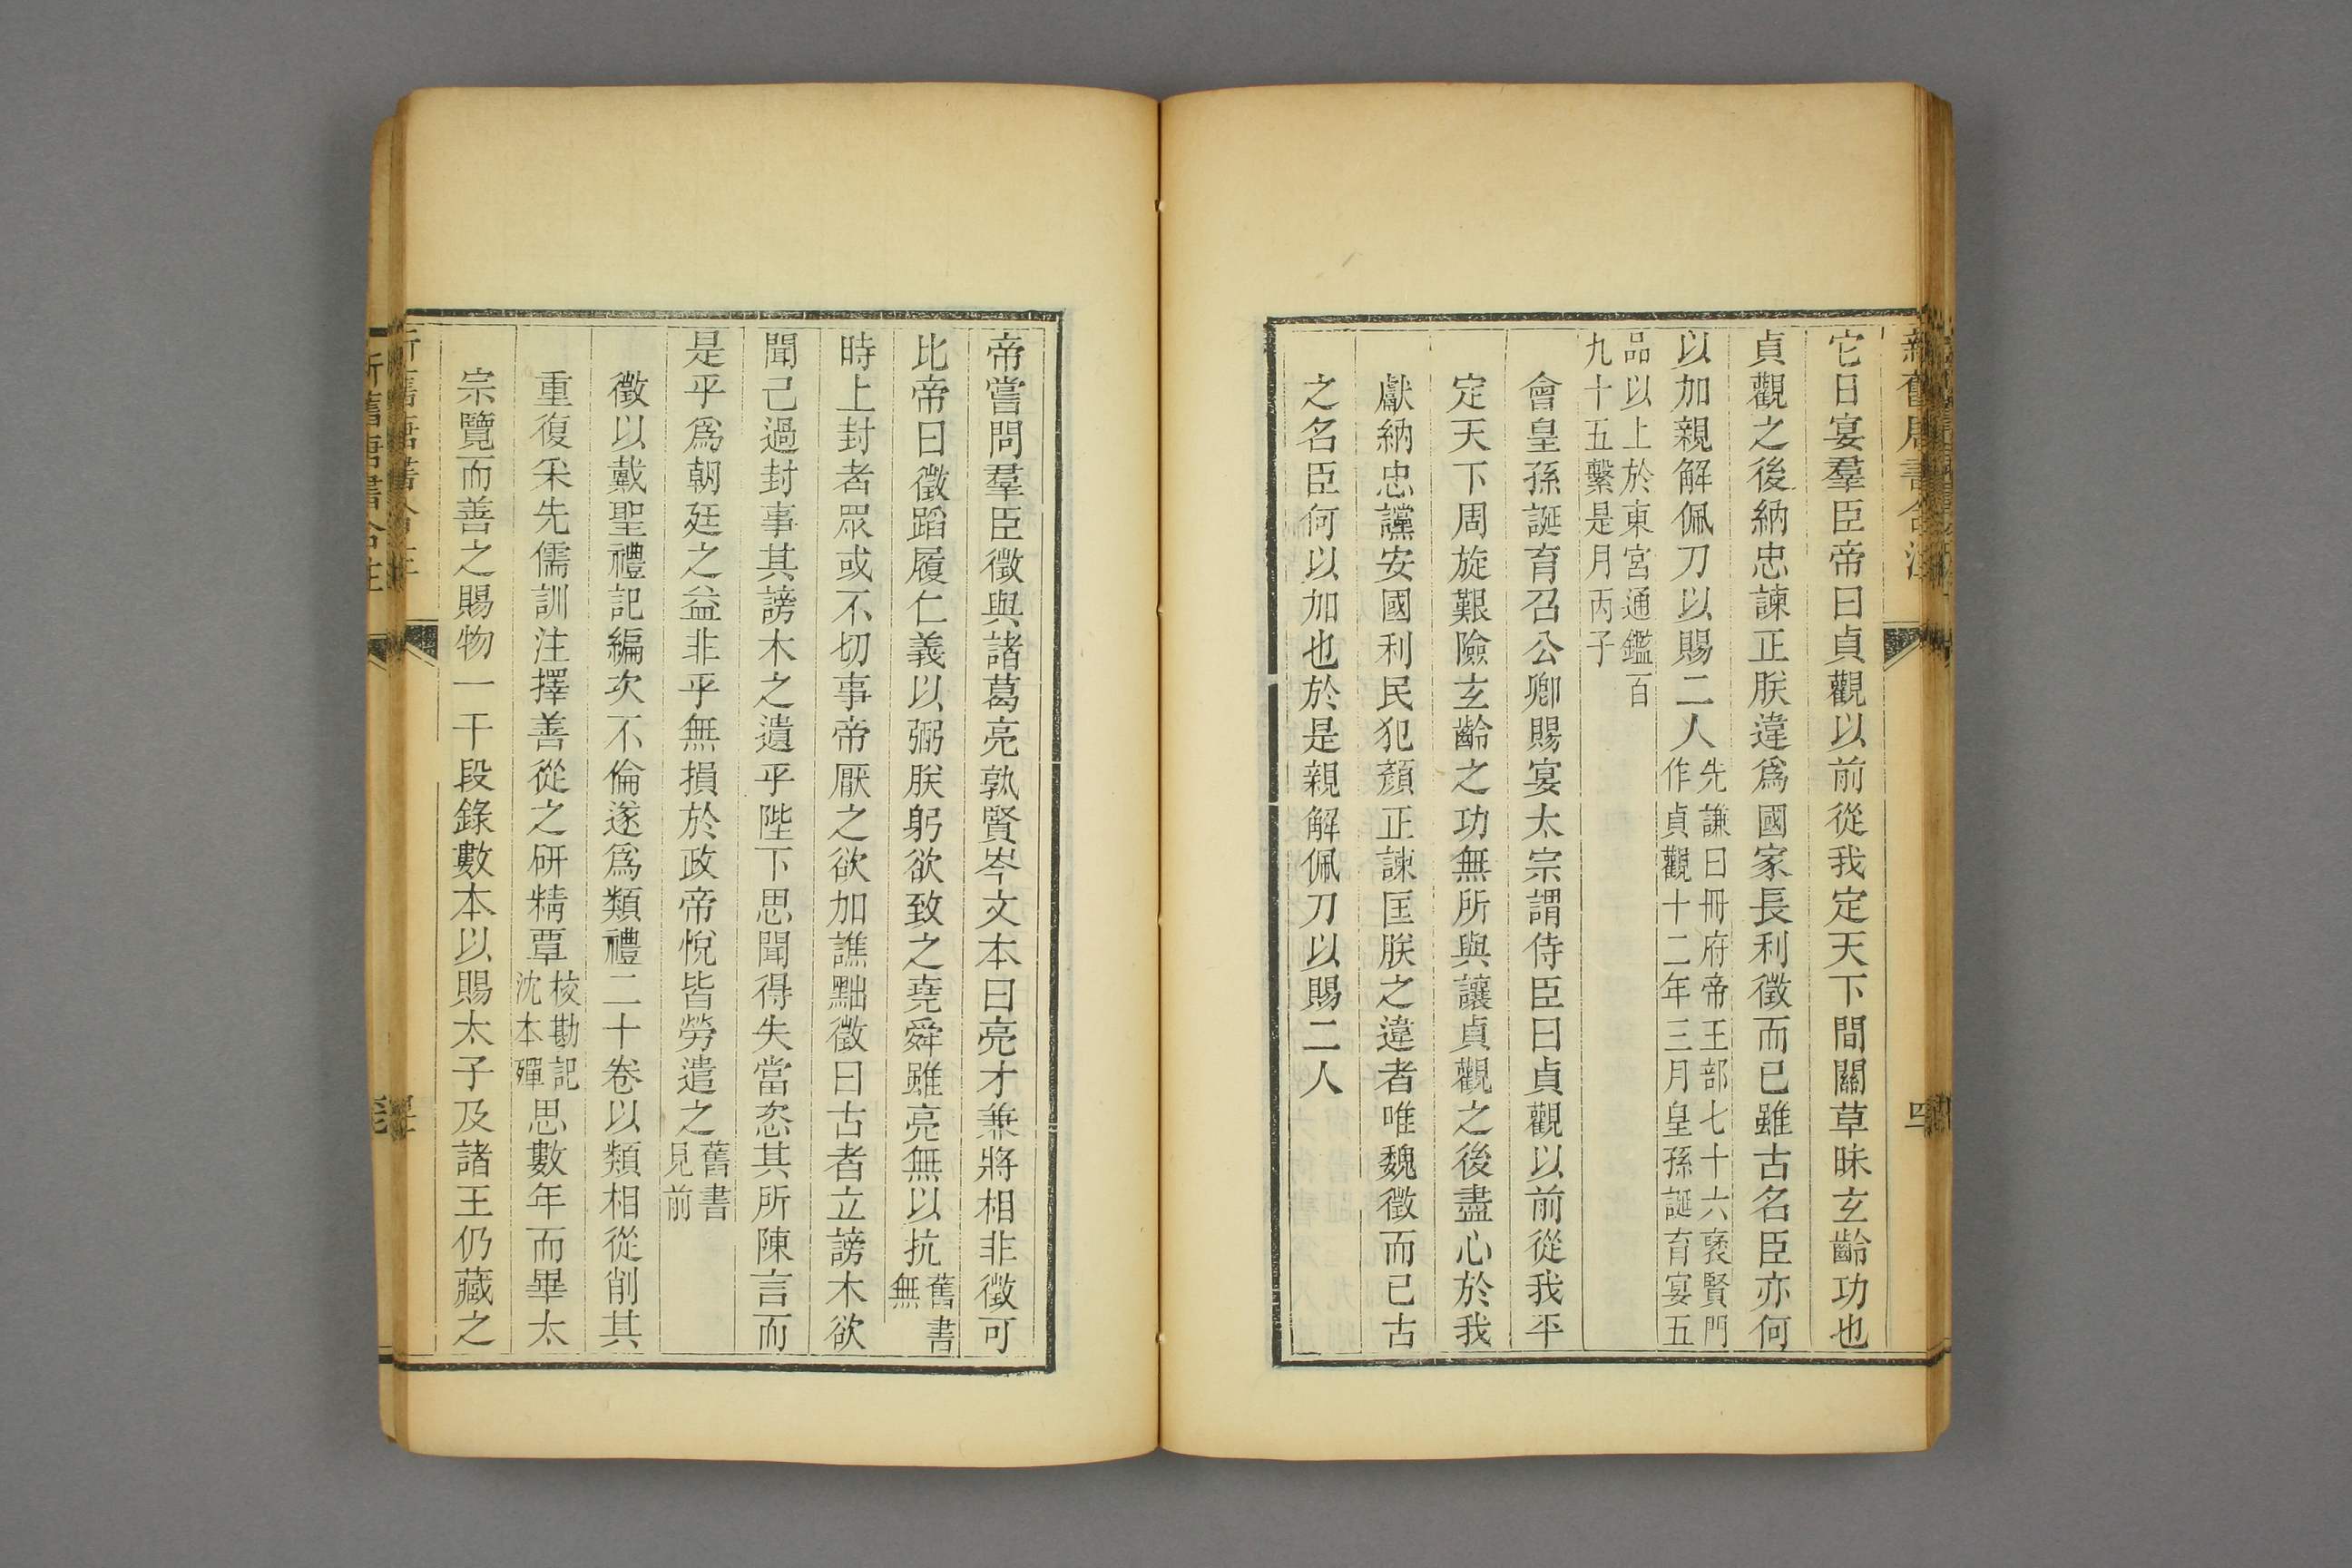 它日宴羣臣帝曰貞觀以前從我定天下間關草昧玄齡功也
貞觀之後納忠諫正朕違爲國家長利徵而已雖古名臣亦何
以加親解佩刀以賜二人先謙曰冊府帝王部七十六褒賢門
作貞觀十二年三月皇孫誕育宴五
品以上於東宮通鑑百
九十五繫是月丙子
會皇孫誕育召公卿賜宴太宗謂侍臣曰貞觀以前從我平
定天下周旋艱險玄齡之功無所與讓貞觀之後盡心於我
獻納忠讜安國利民犯顏正諫匡朕之違者唯魏徵而已古
之名臣何以加也於是親解佩刀以賜二人
帝嘗問羣臣徵與諸葛亮孰賢岑文本曰亮才兼將相非徵可
比帝曰徵蹈履仁義以弼朕躬欲致之堯舜雖亮無以抗舊書
無
時上封者眾或不切事帝厭之欲加譙黜徵曰古者立謗木欲
聞己過封事其謗木之遺乎陛下思聞得失當恣其所陳言而
是乎爲朝廷之益非乎無損於政帝悅皆勞遣之舊書
見前
徵以戴聖禮記編次不倫遂爲類禮二十卷以類相從削其
重復采先儒訓注擇善從之研精覃校勘記
沈本殫思數年而畢太
宗覽而善之賜物一千段錄數本以賜太子及諸王仍藏之